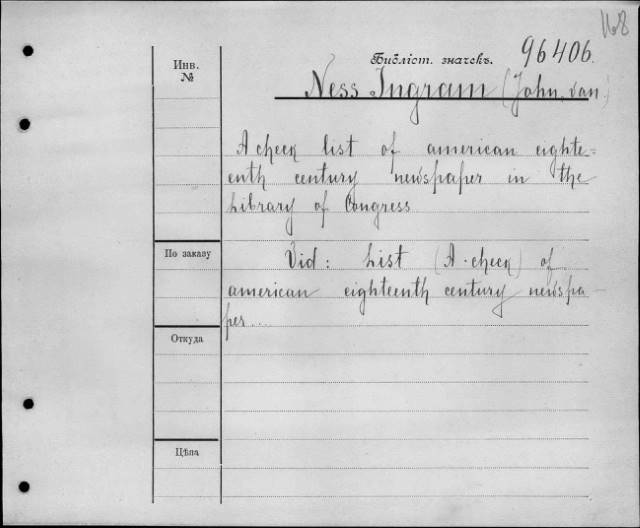 168
Библіот. значекъ. 96406.
Инв.
№
Ness Ingram (John, van)
A check list of american eighte=
enth century newspaper in the
Library of Congress
По заказу
Vid: List (A check) of
american eighteenth century newspa-
per....
Откуда
Цѣна